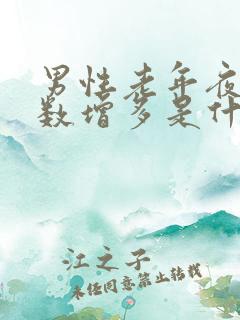 男性老年夜
数增多是什
江之子
未经同意禁止转载